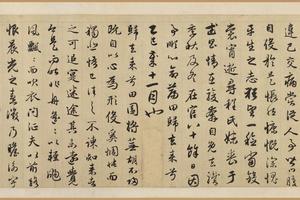 違己交病嘗從人事皆口腹
自役於是悵然慷慨深愧
平生之志猶望一稔當斂
裳宵逝尋程氏妹喪于
武昌情在駿奔自免去職
秋及冬在官八十餘日因
事順心命篇曰歸去來兮
乙巳歲十一月也
歸去來兮田園將蕪胡不歸
既自以心為形役奚惆悵而
獨悲悟已往之不諫知來者
之可追寔迷途其未遠覺
今是而昨非舟遙遙以輕颺
風飄飄而吹衣問征夫以前路
恨晨光之熹微乃瞻衡宇